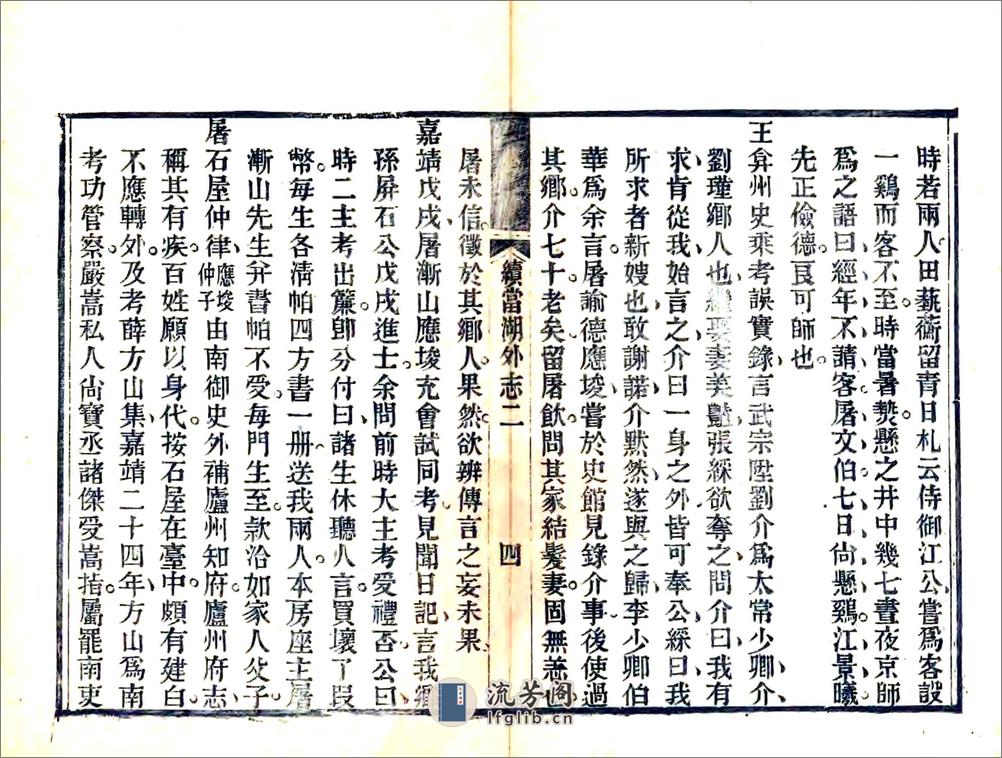 時若兩人田藝蘅留青日札云侍御江公嘗爲客設
一鷄而客不至時當暑𤍠懸之井中幾七晝夜京師
爲之語曰經年不請客屠文伯七日尙懸鷄江景曦
先正儉德良可師也
王弇州史乘考誤實錄言武宗陞劉介爲太常少卿介
劉瑾鄉人也繼娶妻美豔張綵欲奪之問介曰我有
求肯從我始言之介曰一身之外皆可奉公綵曰我
所求者新嫂也敢謝諾介默然遂與之歸李少卿伯
華爲余言屠諭德應埈嘗於史館見錄介事後使過
其鄉介七十老矣留屠飲問其家結髮妻固無恙也
續當湖外志二
四
屠未信徵於其鄉人果然欲辨傳言之妄未果
嘉靖戊戌屠漸山應埈充會試同考見聞日記言我鄉
孫屏石公戊戌進士余問前時大主考受禮否公曰
時二主考出簾卽分付曰諸生休聽人言買壞了叚
幣每生各淸帕四方書一册送我兩人本房座主屠
漸山先生弁書帕不受每門生至款洽如家人父子
屠石屋仲律應埈仲子由南御史外補廬州知府廬州府志
稱其有疾百姓願以身代按石屋在臺中頗有建白
不應轉外及考薛方山集嘉靖二十四年方山爲南
考功管察嚴嵩私人尙寶丞諸傑受嵩指屬罷南吏
流芳阁
lfglib.cn